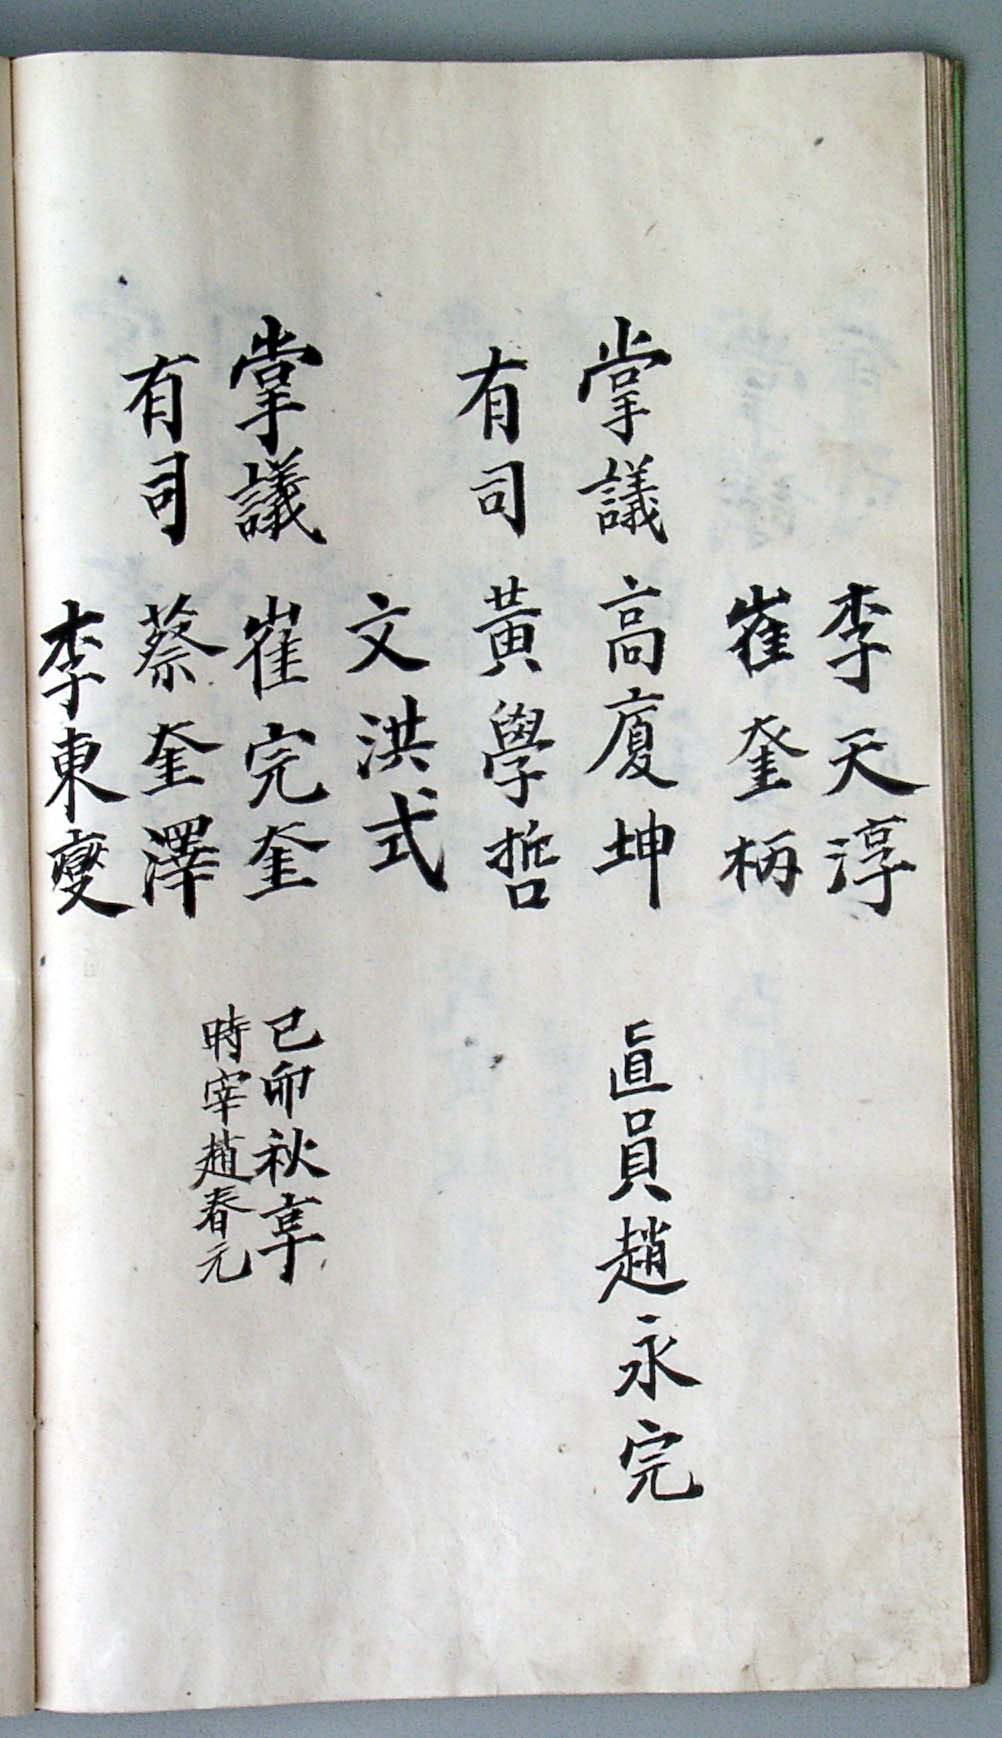 李天淳
崔奎柄
掌議 高廈坤 眞員趙永完
有司 黃學哲
文洪式
掌議 崔完奎 己卯秋享
時宰趙春元
有司 蔡奎澤
李東燮